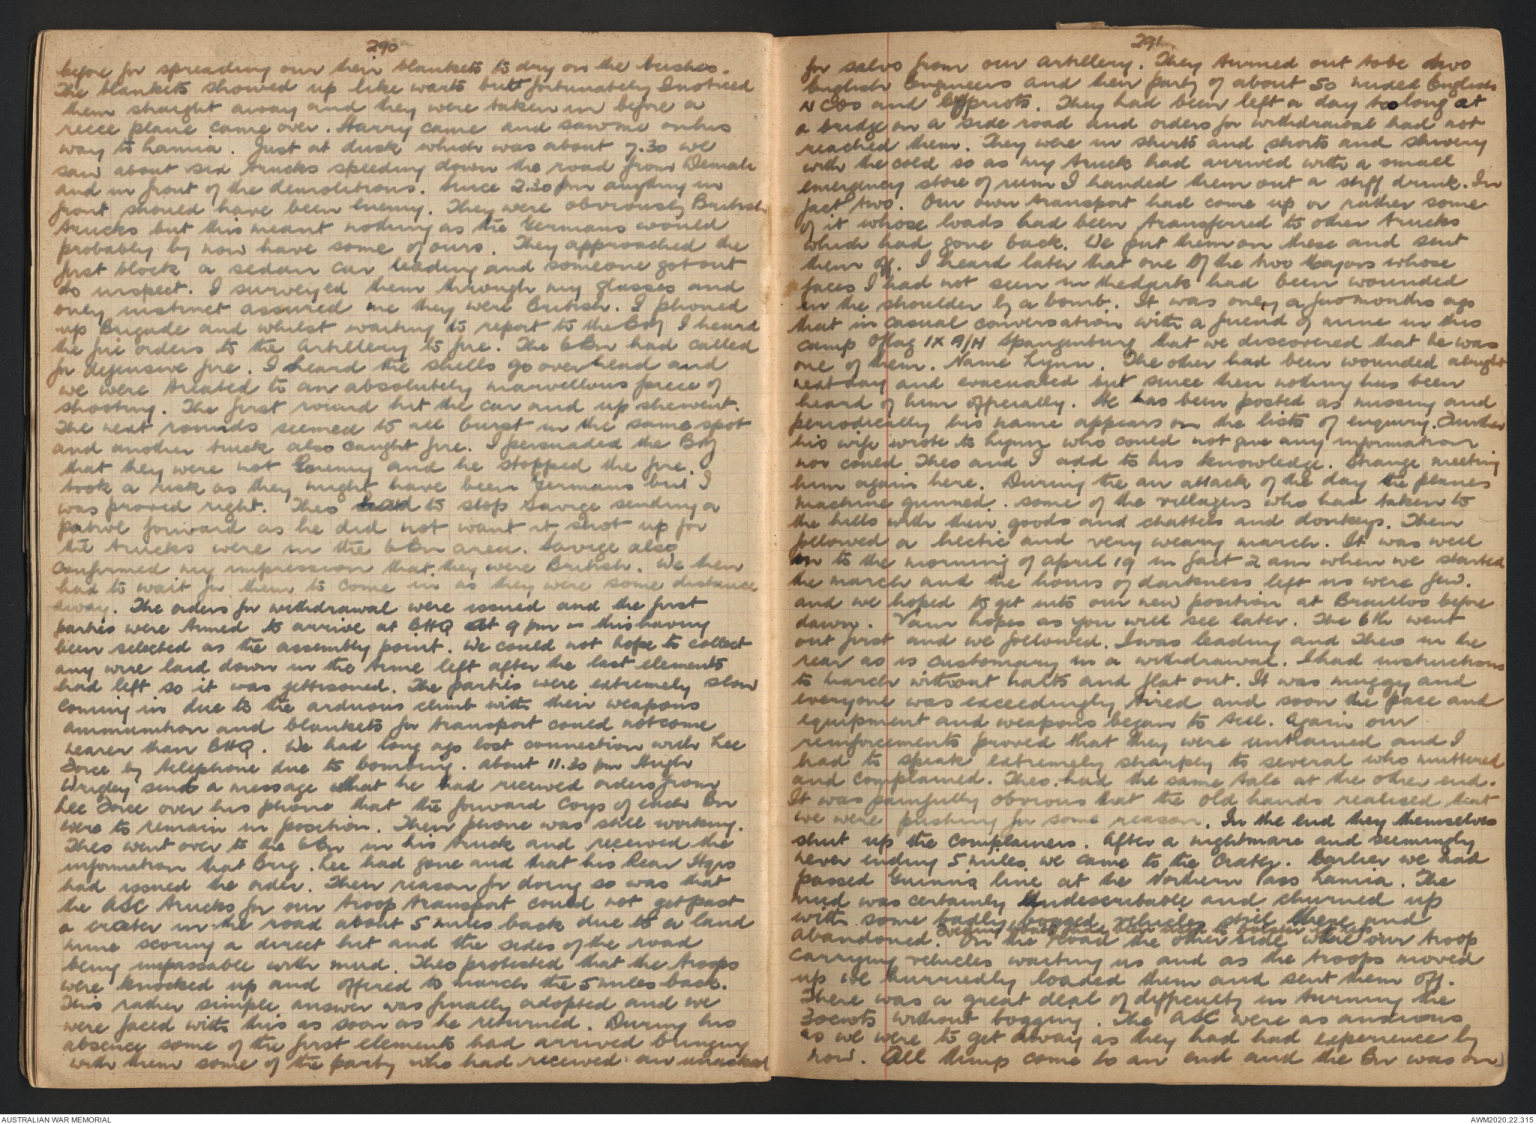 290
before for spreading our their blankets to dry on the bushes.
The blankets showed up like warts but fortunately I noticed
them straight away and they were taken in before a
recce plane came over. Harry came and saw me on his
way to Lamia. Just at dusk which was about 7.30 we
saw about six trucks speeding down the road from
and in front of the demolitions. Since 2.30 pm anything in
front should have been enemy. They were obviously British
trucks but this meant nothing as the Germans would
probably by now have some of ours. They approached the
first block a sedan car leading and someone got out
to inspect. I surveyed them through my glasses and
only instinct assured me they were British. I phoned
up Brigade and whilst waiting to report to the Brig I heard
the fire orders to the artillery to fire. The 6 Bn had called
for defensive fire. I heard the shells go over head and
we were treated to an absolutely marvellous piece of
shooting. The first round hit the car and up she went.
The next rounds seemed to all burst in the same spot
and another truck also caught fire. I persuaded the Brig
that they were not enemy and he stopped the fire. I
took a risk as they might have been Germans but I
was proved right. Theo had to stop Savige sending a
patrol forward as he did not want it shot up for
the trucks were in the 6 Bn area. Savige also
confirmed my impression that they were British. We then
had to wait for them to come in as they were some distance
away. The orders for withdrawal were issued and the first
parties were timed to arrive at BHQ at 9 pm this having
been selected as the assembly point. We could not hope to collect
any wire laid down in the time left after the last elements
had left so it was jettisoned. The parties were extremely slow
coming in due to the arduous climb with their weapons
ammunition and blankets for transport could not come
nearer than BHQ. We had long ago lost connection with Lee
Force by telephone due to bombing. About 11.30 pm Hugh
Wrigley sends a message that he had received orders from
Lee Force over his phone that the forward Coys of each Bn
were to remain in position. Their phone was still working.
Theo went over to the 6 Bn in his truck and received the
information that Brig. Lee had gone and that his Rear Hqrs
had issued the order. Their reason for doing so was that
the ASC trucks for our troop transport could not get past
a crater in the road about 5 miles back due to a land
mine scoring a direct hit and the sides of the road
being impassable with mud. Theo protested that the troops
were knocked up and offered to march the 5 miles back.
This rather simple answer was finally adopted and we
were faced with this as soon as he returned. During his
absence some of the first elements had arrived bringing
with them some of the party who had received our
291
for salvo from our artillery. They turned out to be two
English Engineers and their party of about 50 mixed English
NCOs and Cypriots. They had been left a day too long at
a bridge on a side road and orders for withdrawal had not
reached them. They were in shirts and shorts and shivering
with the cold so as my trucks had arrived with a small
emergency store of rum I handed them out a stiff drink. In
fact two. Our own transport had come up or rather some
of it whose loads had been transferred to other trucks
which had gone back. We put them on these and sent
them off. I heard later that one of the two Majors whose
faces I had not seen in the darts had been wounded
in the shoulder by a bomb. It was only a few months ago
that in casual conversation with a friend of mine in this
camp Oflag IX A/H Spangenburg that we discovered that he was
one of them. Name Lynn. The other had been wounded alright
next day and evacuated but since then nothing has been
heard of him officially. He has been posted as missing and
periodically his name appears on the lists of enquiry. Further
his wife wrote to Lynn who could not give any information
nor could Theo and I add to his knowledge. Strange meeting
him again here. During the air attack of the day the planes
machine gunned some of the villagers who had taken to
the hills with their goods and chattels and donkeys. Then
followed a hectic and very weary march. It was well
on to the morning of April 19 in fact 2 am when we started
the march and the hours of darkness left us were few.
and we hoped to get into our new position at Brallos before
dawn. Vain hopes as you will see later. The 6th went
out first and we followed. I was leading and Theo in the
rear as is customary in a withdrawal. I had instructions
to march without halts and flat out. It was muggy and
everyone was exceedingly tired and soon the pace and
equipment and weapons began to tell. Again our
reinforcements proved that they were untrained and I
had to speak extremely sharply to several who muttered
and complained. Theo had the same tale at the other end.
It was painfully obvious that the old hands realised that
we were pushing for some reason. In the end they themselves
shut up the complainers. After a nightmare and seemingly
never ending 5 miles we came to the Crater. Earlier we had
passed Gunn's line at the Northern Pass Lamia. The
mud was certainly indescribable and churned up
with some badly bogged vehicles still there and
abandoned. On the road the other side were our troop
carrying vehicles waiting us and as the troops moved
up we hurriedly loaded them and sent them off.
There was a great deal of difficulty in turning the
30cwts without bogging. The ASC were as anxious
as we were to get away as they had had experience by
now. All things come to an end and the Bn was on
AUSTRALIAN WAR MEMORIAL
AWM2020.22.315